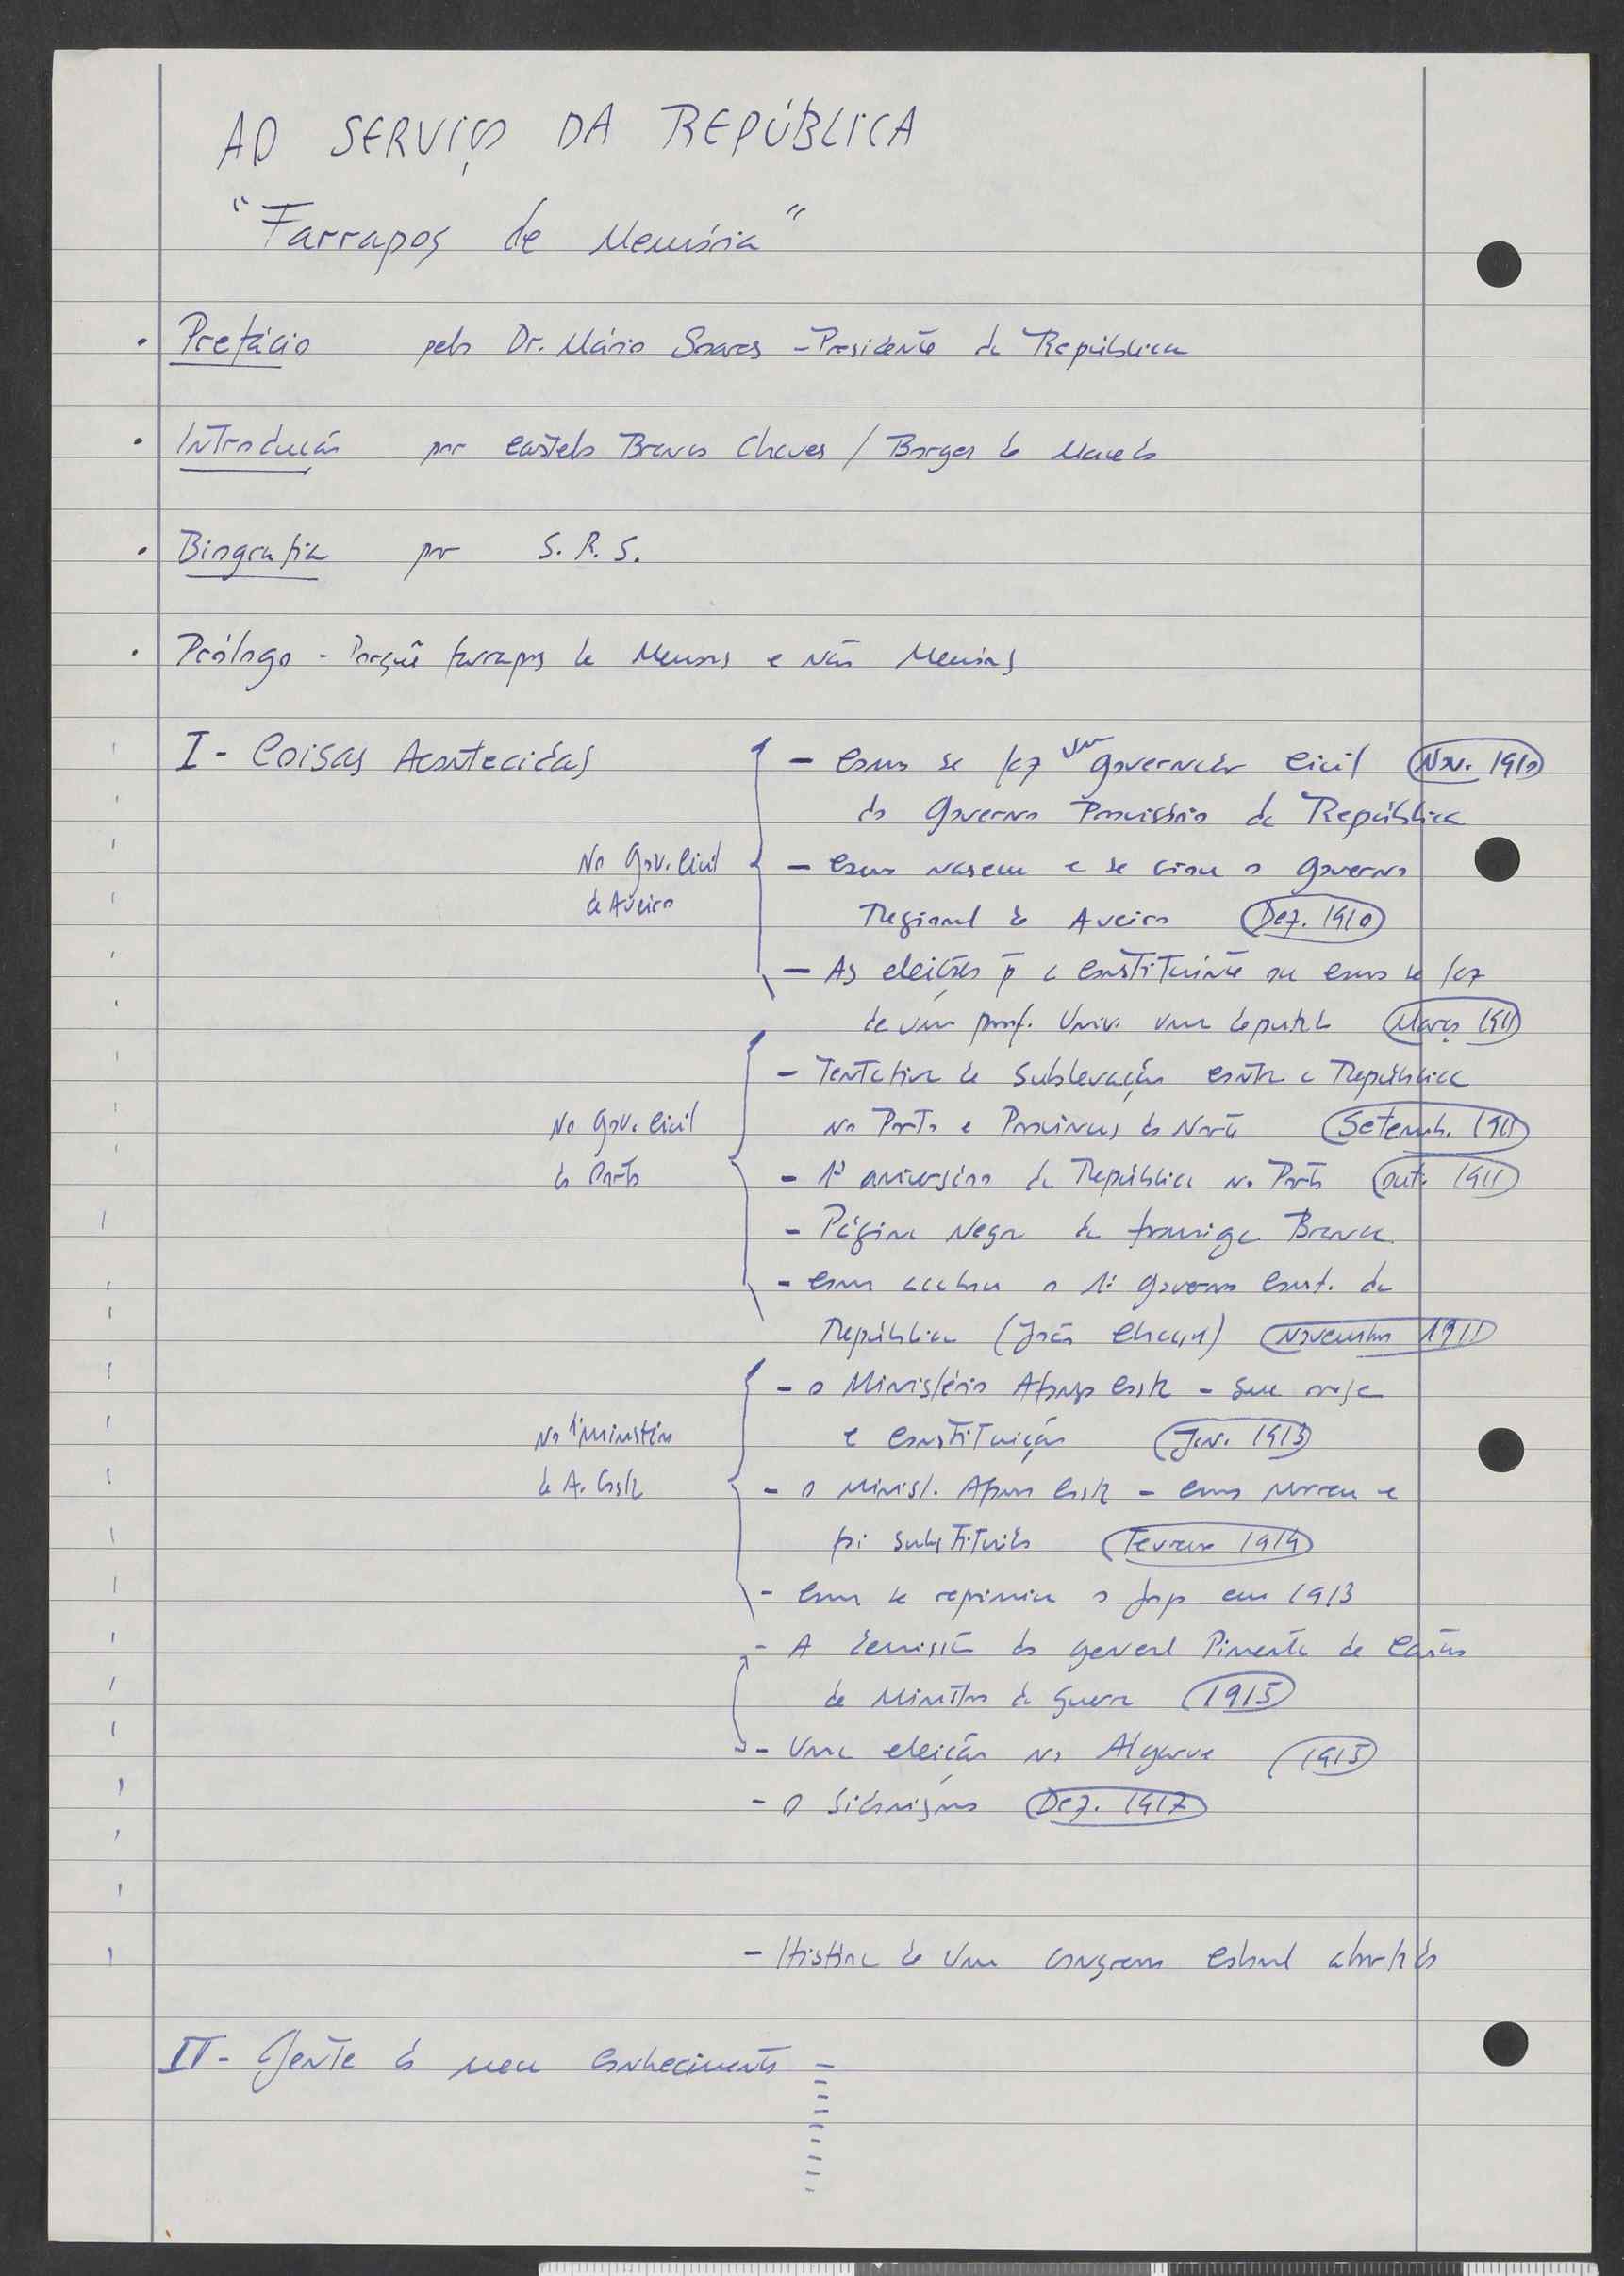 AO SERVIÇO DA REPÚBLICA
"Farrapos de Memória"
. Prefácio pelo Dr. Mário Soares - Presidente da República
. Introdução por Castelo Branco Chaves / Borges de Macedo
. Biografia por S. R. S.
. Prólogo - Porquê farrapos de Memória e não Memórias
I - Coisas Acontecidas
No Gov. Civil
de Aveiro
- Como se fez um governador civil Nov. 1910
do Governo Provisório da República
- Como nasceu e se criou o Governo
Regional de Aveiro Dez. 1910
- As eleições p̄ a Constituinte ou como se fez
de um prof. Univ. um deputado Março 1911
No Gov. Civil
do Porto
- Tentativa de Sublevação contra a República
no Porto e Províncias do Norte Setemb. 1911
- 1º aniversário da República no Porto out. 1911
- Página Negra da formiga Branca
- Como acabou o 1º Governo Const. da
República (João Chagas) Novembro 1911
No 1º ministério
de A. Costa
- O Ministério Afonso Costa - Sua origem
e Constituição Jan. 1913
- O Minist. Afonso Costa - Como morreu e
foi substituído Fevereiro 1914
- Como se reprimiu o jogo em 1913
- A demissão do general Pimenta de Castro
de Ministro da Guerra 1915
- Uma eleição no Algarve 1915
- O Sidonismo Dez. 1917
- História de um congresso colonial abortado
II - Gente do meu Conhecimento -